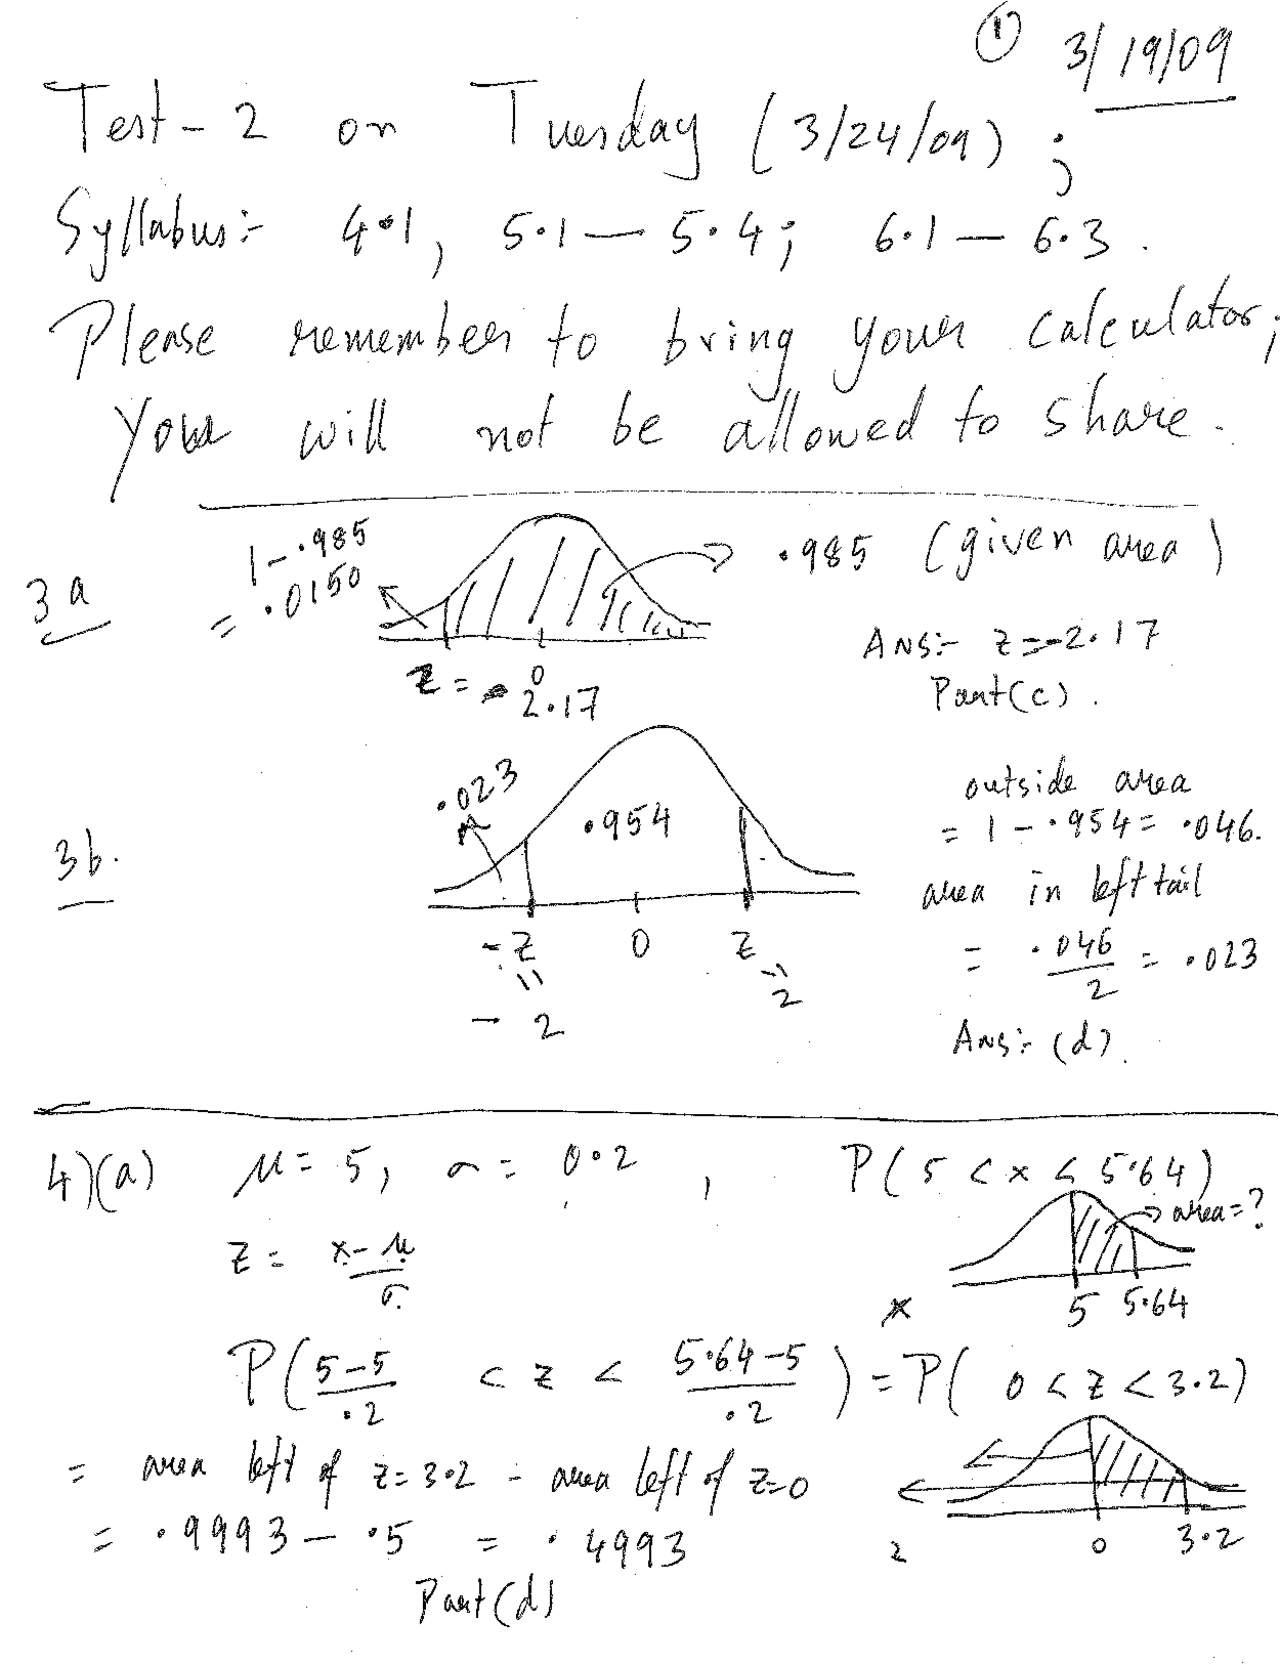 ① 3/19/09
Test-2 on Tuesday (3/24/09);
Syllabus:- 4.1, 5.1 — 5.4; 6.1 — 6.3.
Please remember to bring your calculator;
You will not be allowed to share.
3a
1-.985
= .0150
.985 (given area)
z = -2.17
0
Ans:- z=-2.17
Part(c).
3b.
.023
.954
-z 0 z
= =
-2 2
outside area
= 1 - .954 = .046.
area in left tail
= .046/2 = .023
Ans:- (d).
4)(a) μ = 5, σ = 0.2, P(5 < x < 5.64)
area=?
z = x-μ/σ
x 5 5.64
P(5-5/.2 < z < 5.64-5/.2) = P(0 < z < 3.2)
= area left of z=3.2 - area left of z=0
= .9993 - .5 = .4993
z 0 3.2
Part(d)